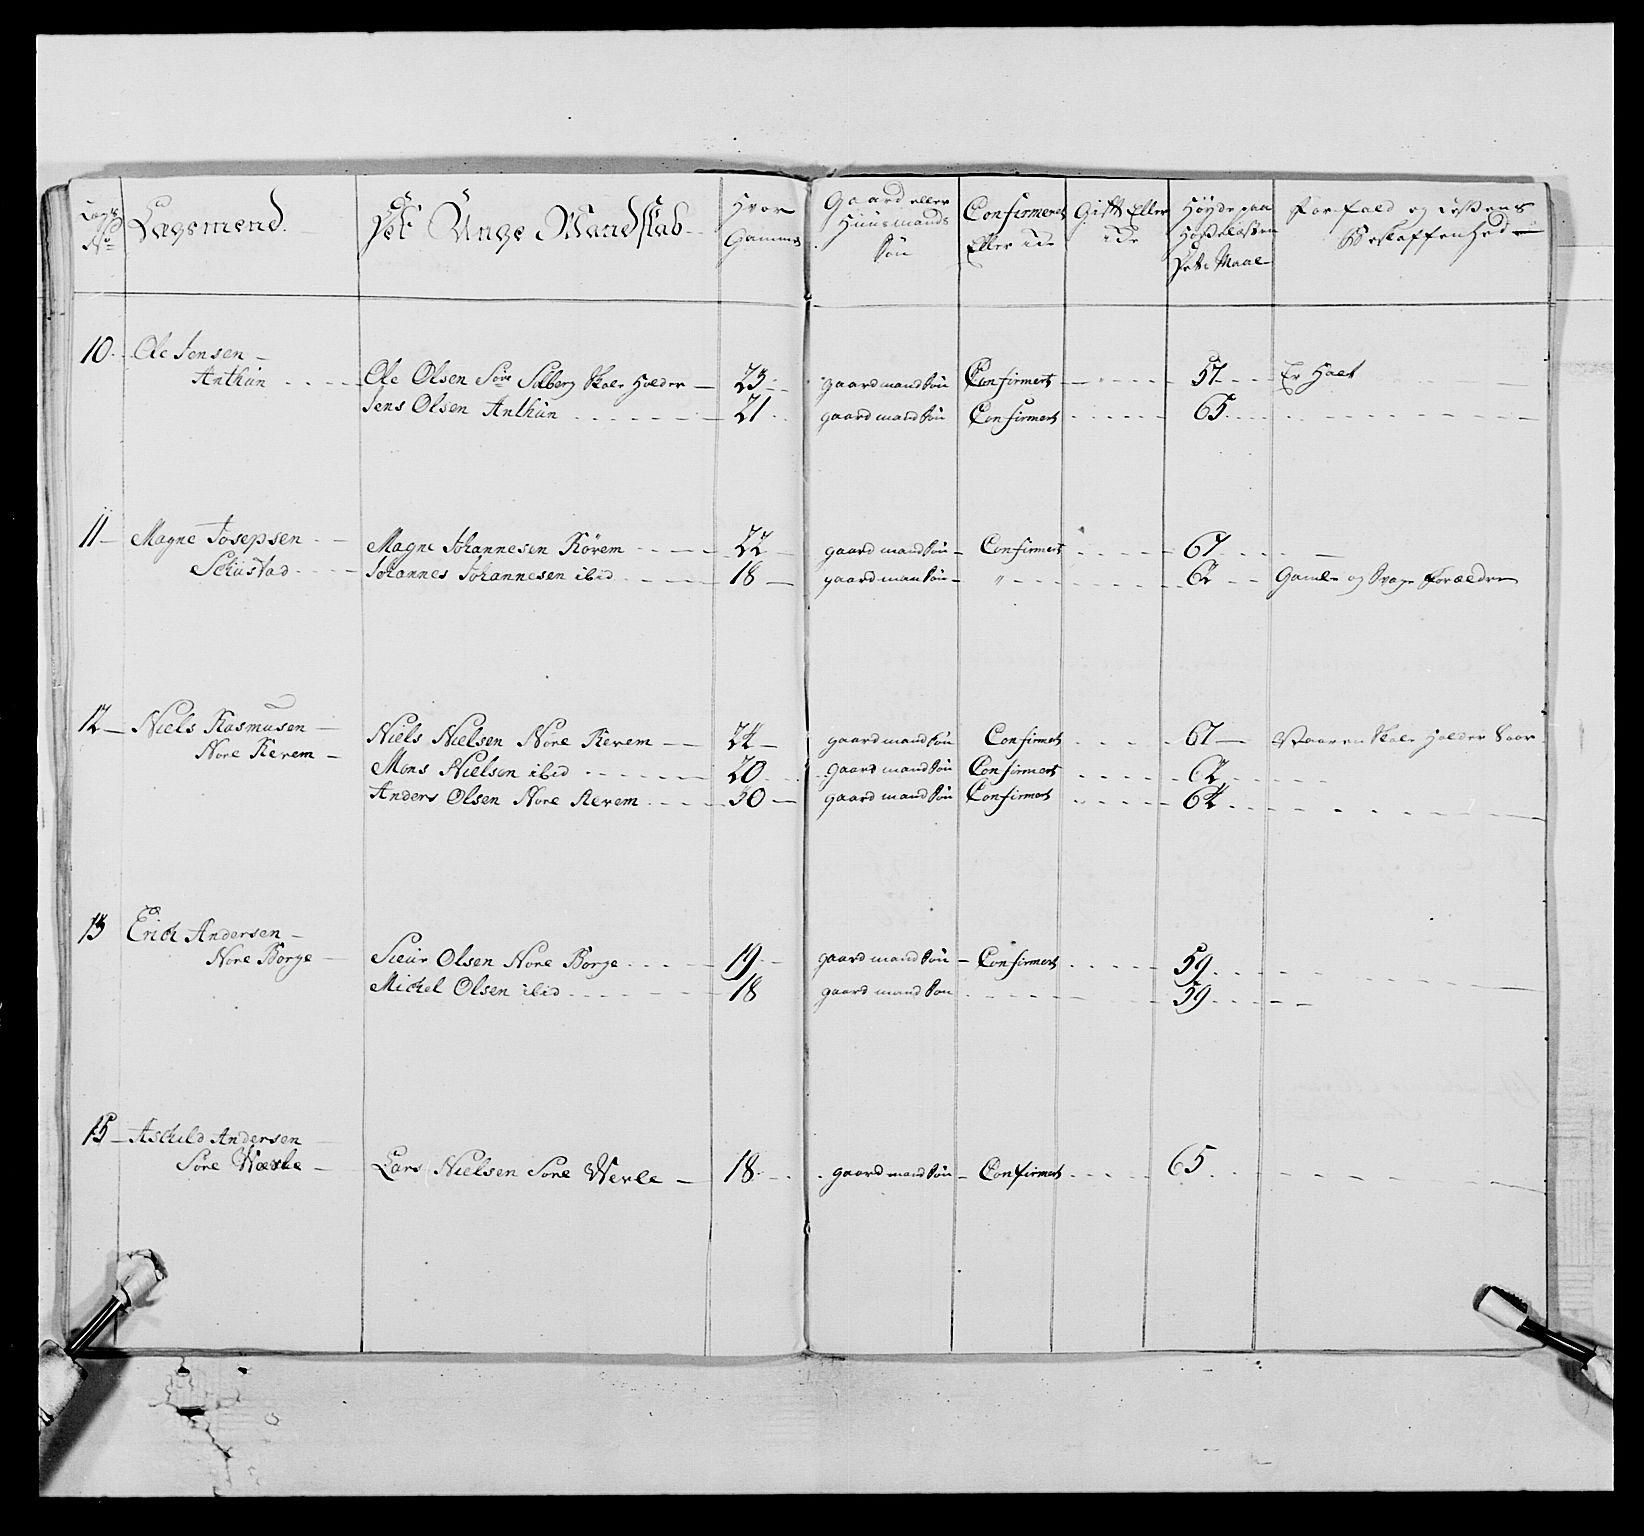 Lægs No
Lægsmend
Det Unge Mandskab
Hvor Gammel
Gaard eller Huusmands Søn
Confirmeret Eller Ide
Gift Eller Ide
Høyde paa Hosselæsten Dette Maal
Forfald og dessens Beskaffenhed
10. Ole Jensen
Anthun Ole Olsen Søre Solberg Skole Holder 23 gaardmand Søn Confirmert 57 Er Halt
Jens Olsen Anthun 21 gaardmand Søn Confirmert 65
11 Magne Josepsen Magne Johannesen Kørem 22 gaardmand Søn Confirmert 67
Johannes Johannesen ibid 18 gaardman Søn " 62 Gamle og Svage Forældre
12 Niels Rasmusen Niels Nielsen Nore Kerem 24 gaardmand Søn Confirmet 67 Skole Holder
Nore Kerem Mons Nielsen ibid 20 gaard mand Søn Confirmert 62
Anders Olsen Nore Kerem 30 gaard mand Søn Confirmet 64
13 Erich Andersen
Nore Borge Sieur Olsen Nore Borge 19 gaard mand Søn Confirmert 59
Michel Olsen ibid 18 gaard mand Søn 59
15 Aschild Andersen
Søre Werle Lars Nielsen Søre Werle 18 gaard mand Søn Confirmert 65